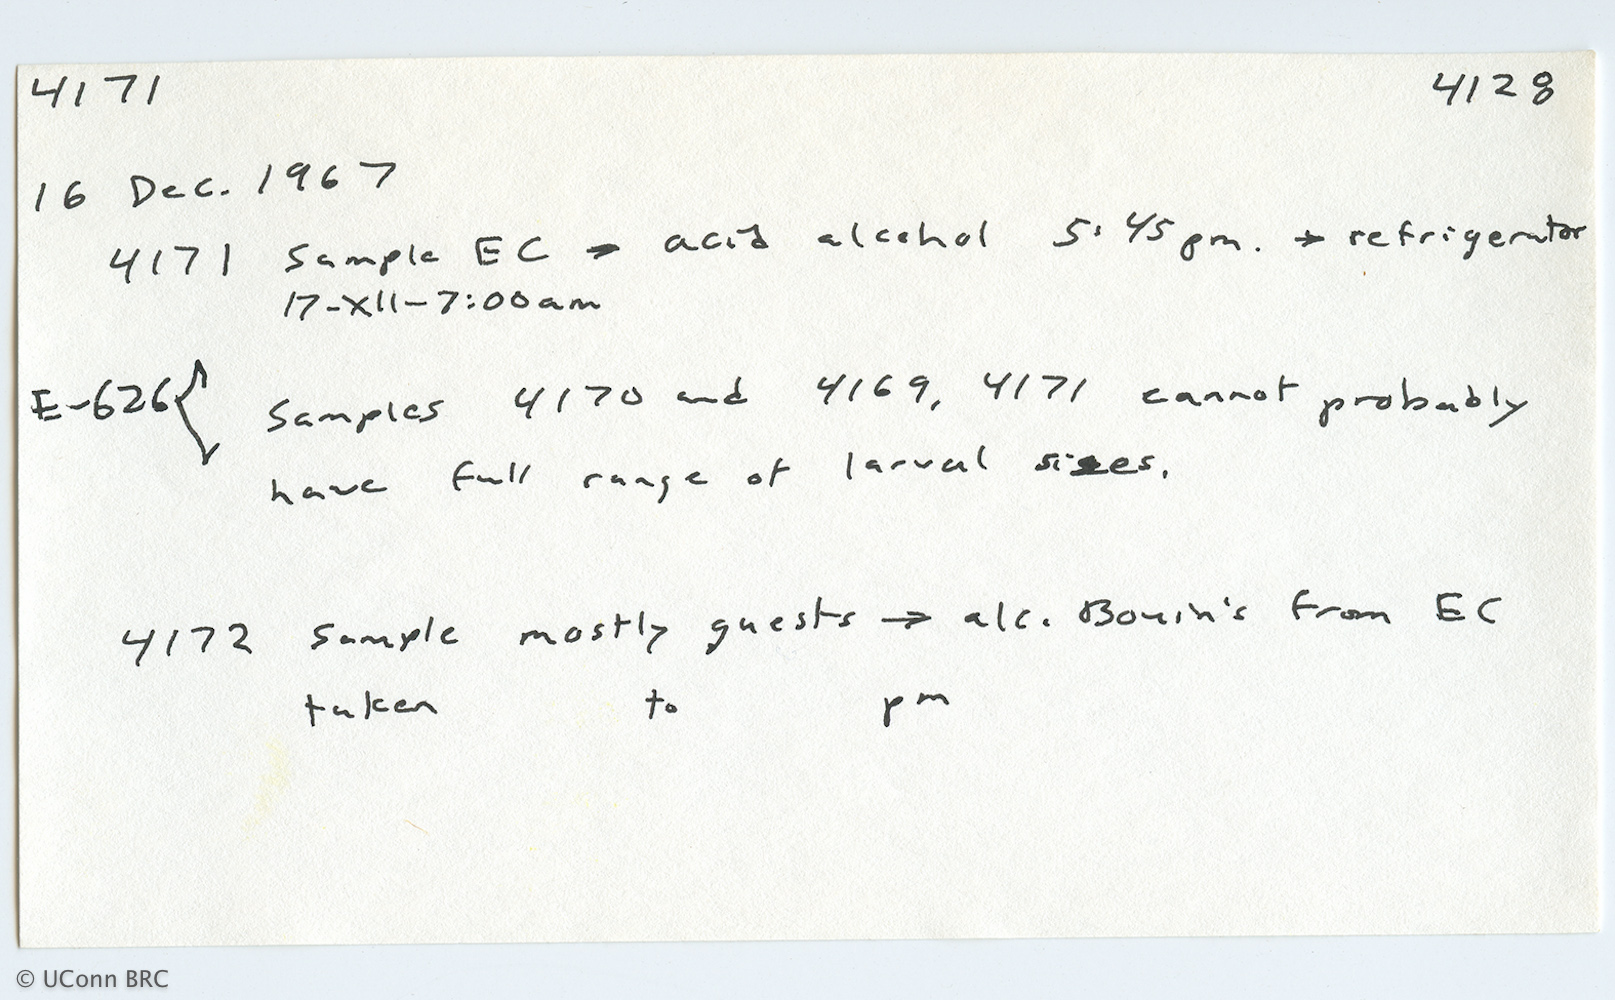 4171 4128
16 Dec. 1967
4171 Sample EC → acid alcohol 5:45pm. → refrigerator
17-XII-7:00am
E-626 { Samples 4170 and 4169, 4171 cannot probably
have full range of larval sizes.
4172 Sample mostly guests → alc. Bouin's from EC
taken to pm
© UConn BRC